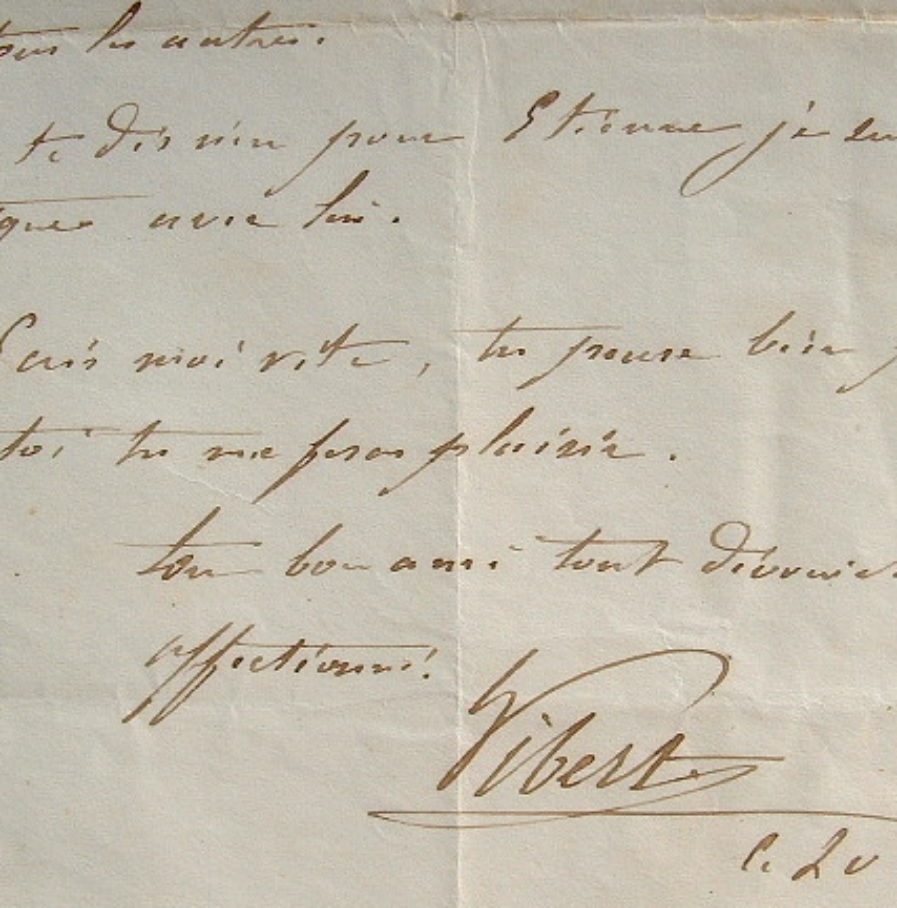 tous les autres.
te dis rien pour Etienne je
avec lui.
Ecris moi vite, tu peux bien
toi tu me feras plaisir.
ton bon ami tout dévoué
affectionné.
Vibert